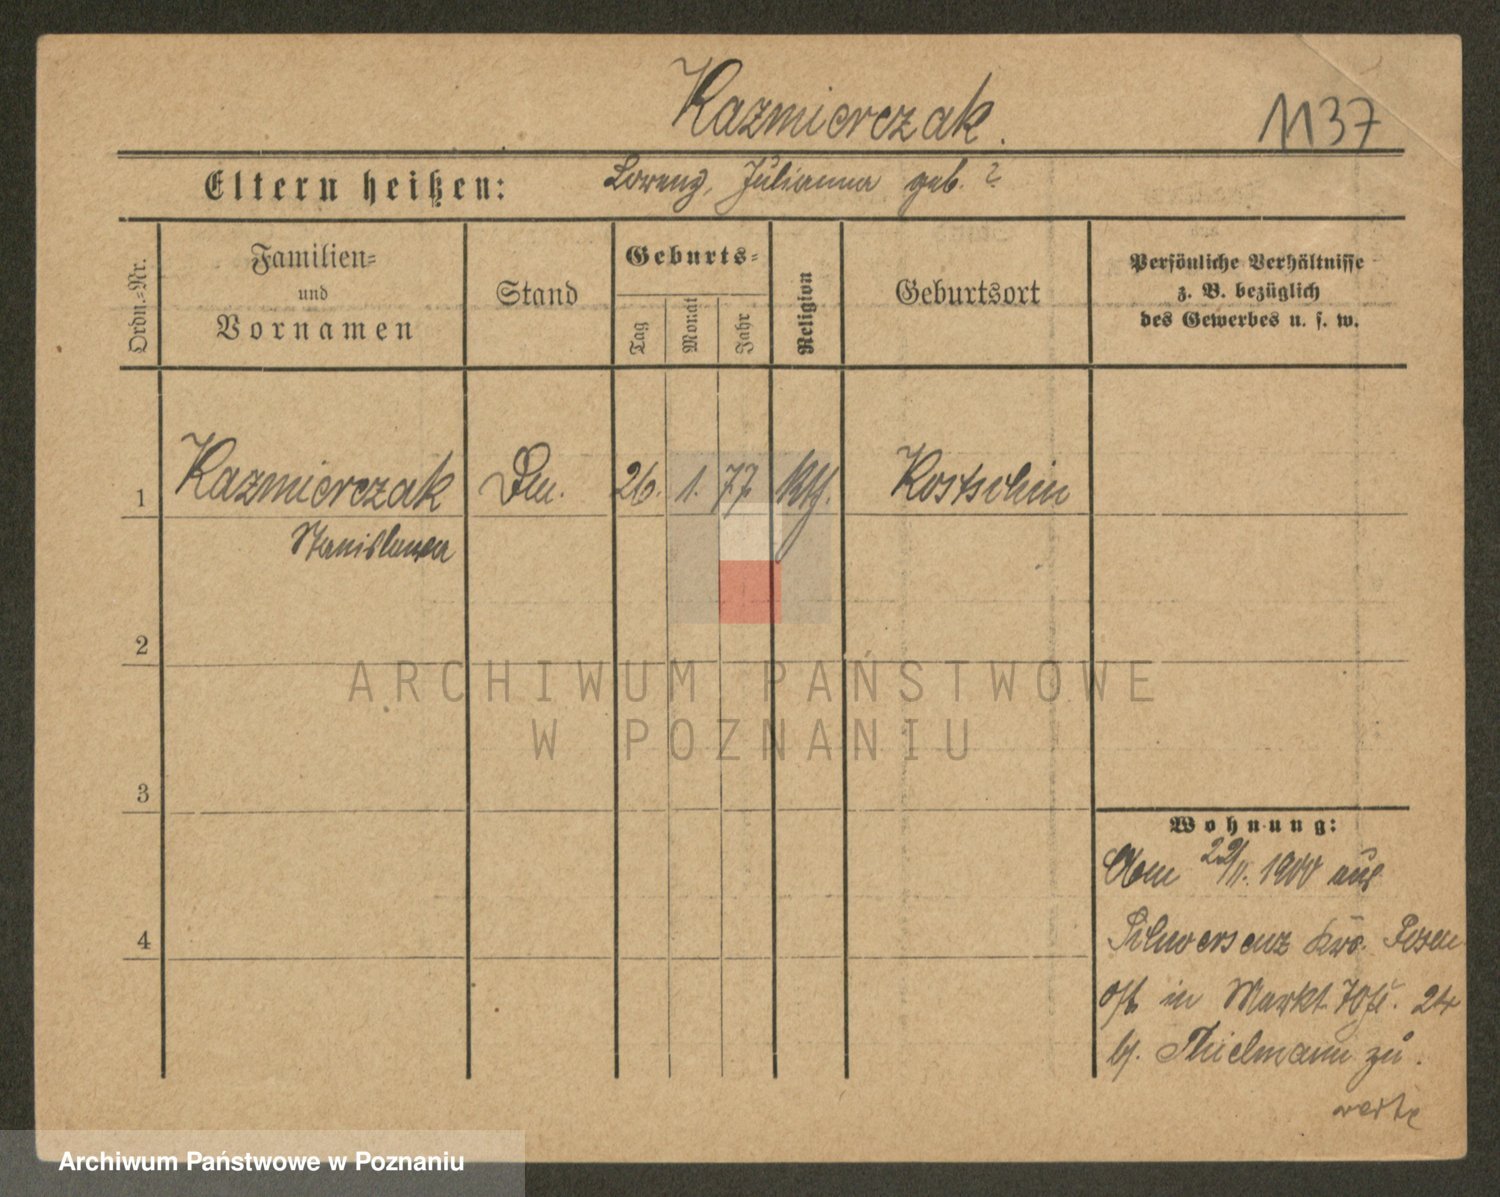 Kazmierczak.
1137
Eltern heißen:
Lorenz, Julianna geb. ?
Ordn.=Nr.
Familien=
und
Vornamen
Stand
Geburts=
Tag
Monat
Jahr
Religion
Geburtsort
Persönliche Verhältnisse
z. B. bezüglich
des Gewerbes u. s. w.
1
Kazmierczak
26. 1. 77.
Kth.
Kostschin
Stanislawa
2
ARCHIWUM PAŃSTWOWE
W POZNANIU
3
Wohnung:
22/II. 1900 aus
4
Schwersenz Krs. Posen
in Markt
bei Thielmann zu.
Archiwum Państwowe w Poznaniu